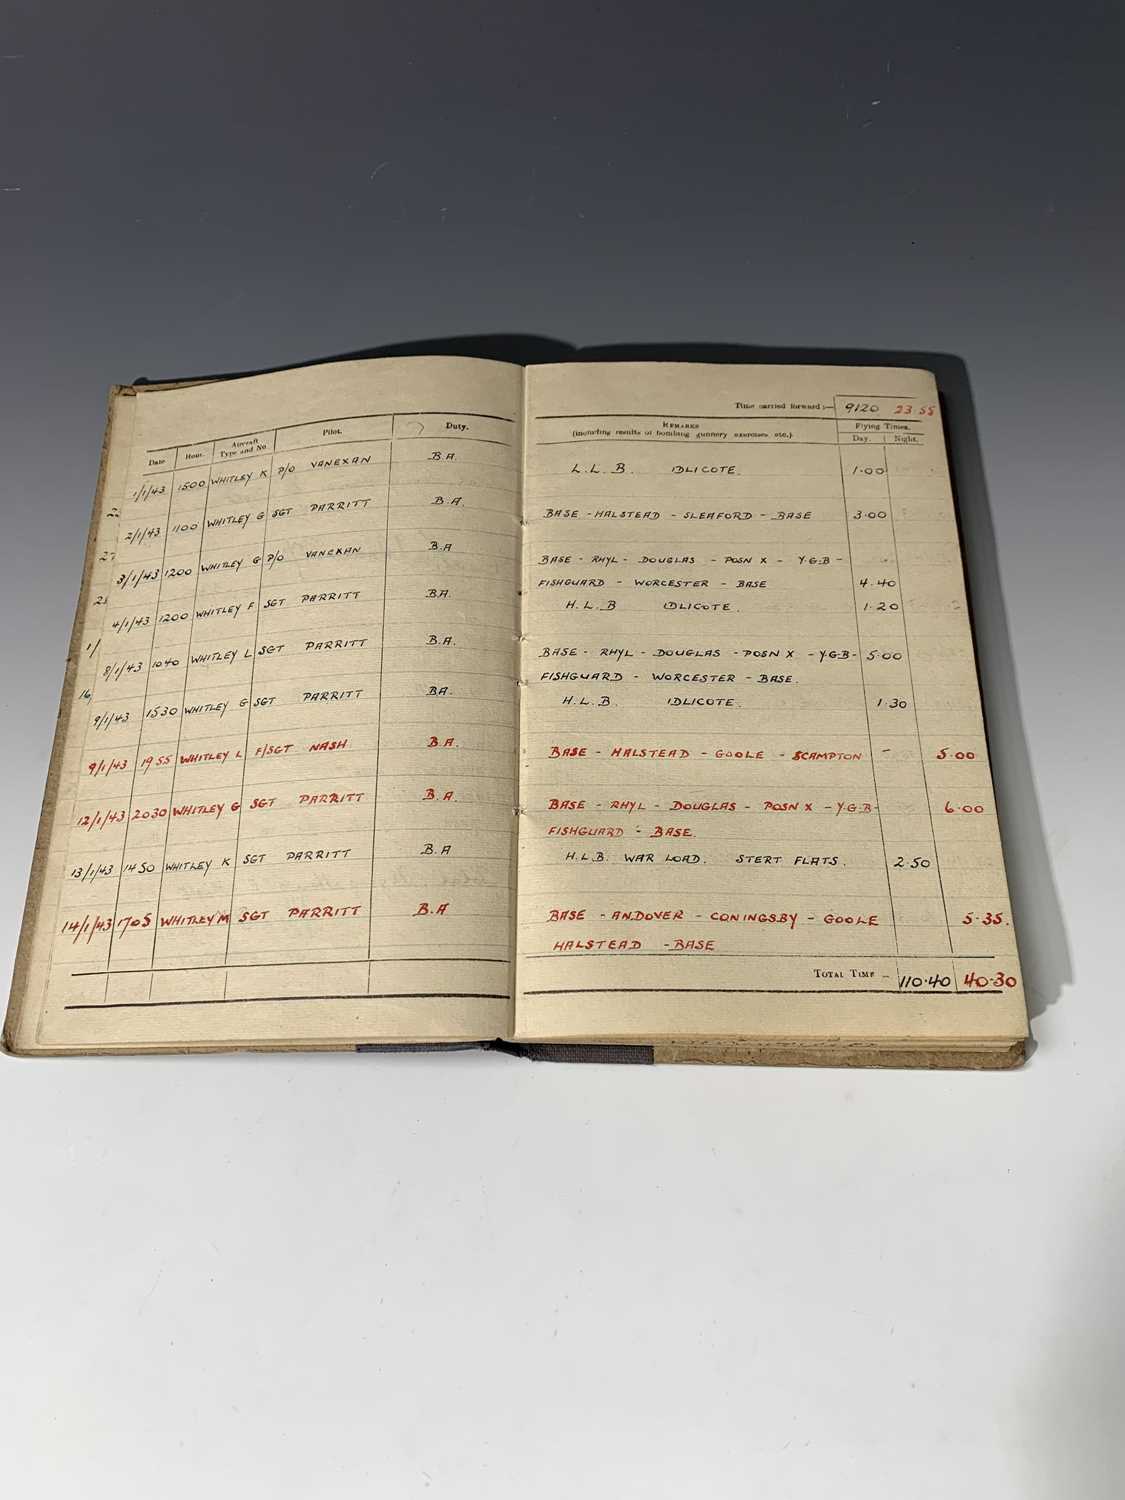 Time carried forward :— 9120 23.55
Date Hour. Aircraft Type and No Pilot. Duty. REMARKS (including results of bombing gunnery exercises etc.) Flying Times. Day. Night.
1/1/43 1500 WHITLEY K P/O VANEXAN B.A. L.L.B. IDLICOTE. 1.00
2/1/43 1100 WHITLEY G SGT PARRITT B.A. BASE - HALSTEAD - SLEAFORD - BASE 3.00
3/1/43 1200 WHITLEY G P/O VANEXAN B.A BASE - RHYL - DOUGLAS - POSN X - Y.G.B -
FISHGUARD - WORCESTER - BASE 4.40
4/1/43 1200 WHITLEY F SGT PARRITT B.A. H.L.B IDLICOTE. 1.20
8/1/43 1040 WHITLEY L SGT PARRITT B.A. BASE - RHYL - DOUGLAS - POSN X - Y.G.B - 5.00
FISHGUARD - WORCESTER - BASE.
9/1/43 1530 WHITLEY G SGT PARRITT BA. H.L.B. IDLICOTE. 1.30
9/1/43 1955 WHITLEY L F/SGT NASH B.A. BASE - HALSTEAD - GOOLE - SCAMPTON - 5.00
12/1/43 2030 WHITLEY G SGT PARRITT B.A. BASE - RHYL - DOUGLAS - POSN X - Y.G.B - 6.00
FISHGUARD - BASE.
13/1/43 1450 WHITLEY K SGT PARRITT B.A H.L.B. WAR LOAD. STERT FLATS. 2.50
14/1/43 1705 WHITLEY M SGT PARRITT B.A BASE - ANDOVER - CONINGSBY - GOOLE 5.35.
HALSTEAD - BASE
TOTAL TIME - 110.40 40.30